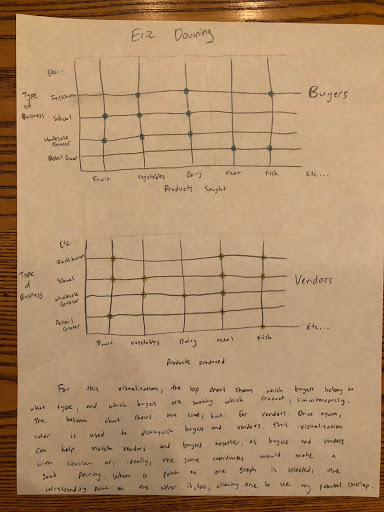 Eric Downing
Etc...
Type of Business
Buyers
School
Wholesale Grocer
Retail Grocer
Fruit Vegetables Dairy Meat Fish Etc...
Products Sought
Etc...
Type of Business
School
Vendors
Wholesale Grocer
Retail Grocer
Etc...
Fruit Vegetables Dairy Meat Fish
Products produced
For this visualization, the top chart shows which buyers belong to
what type, and which buyers are seeking which product, simultaneously.
The bottom chart shows the same, but for vendors. Once again,
color is used to distinguish buyers and vendors. This visualization
can help match vendors and buyers together, as buyers and vendors
with similar or, ideally, the same coordinates would make a
good pairing. When a point on one graph is selected, the
corresponding point on the other is, too, allowing one to see any potential overlap.